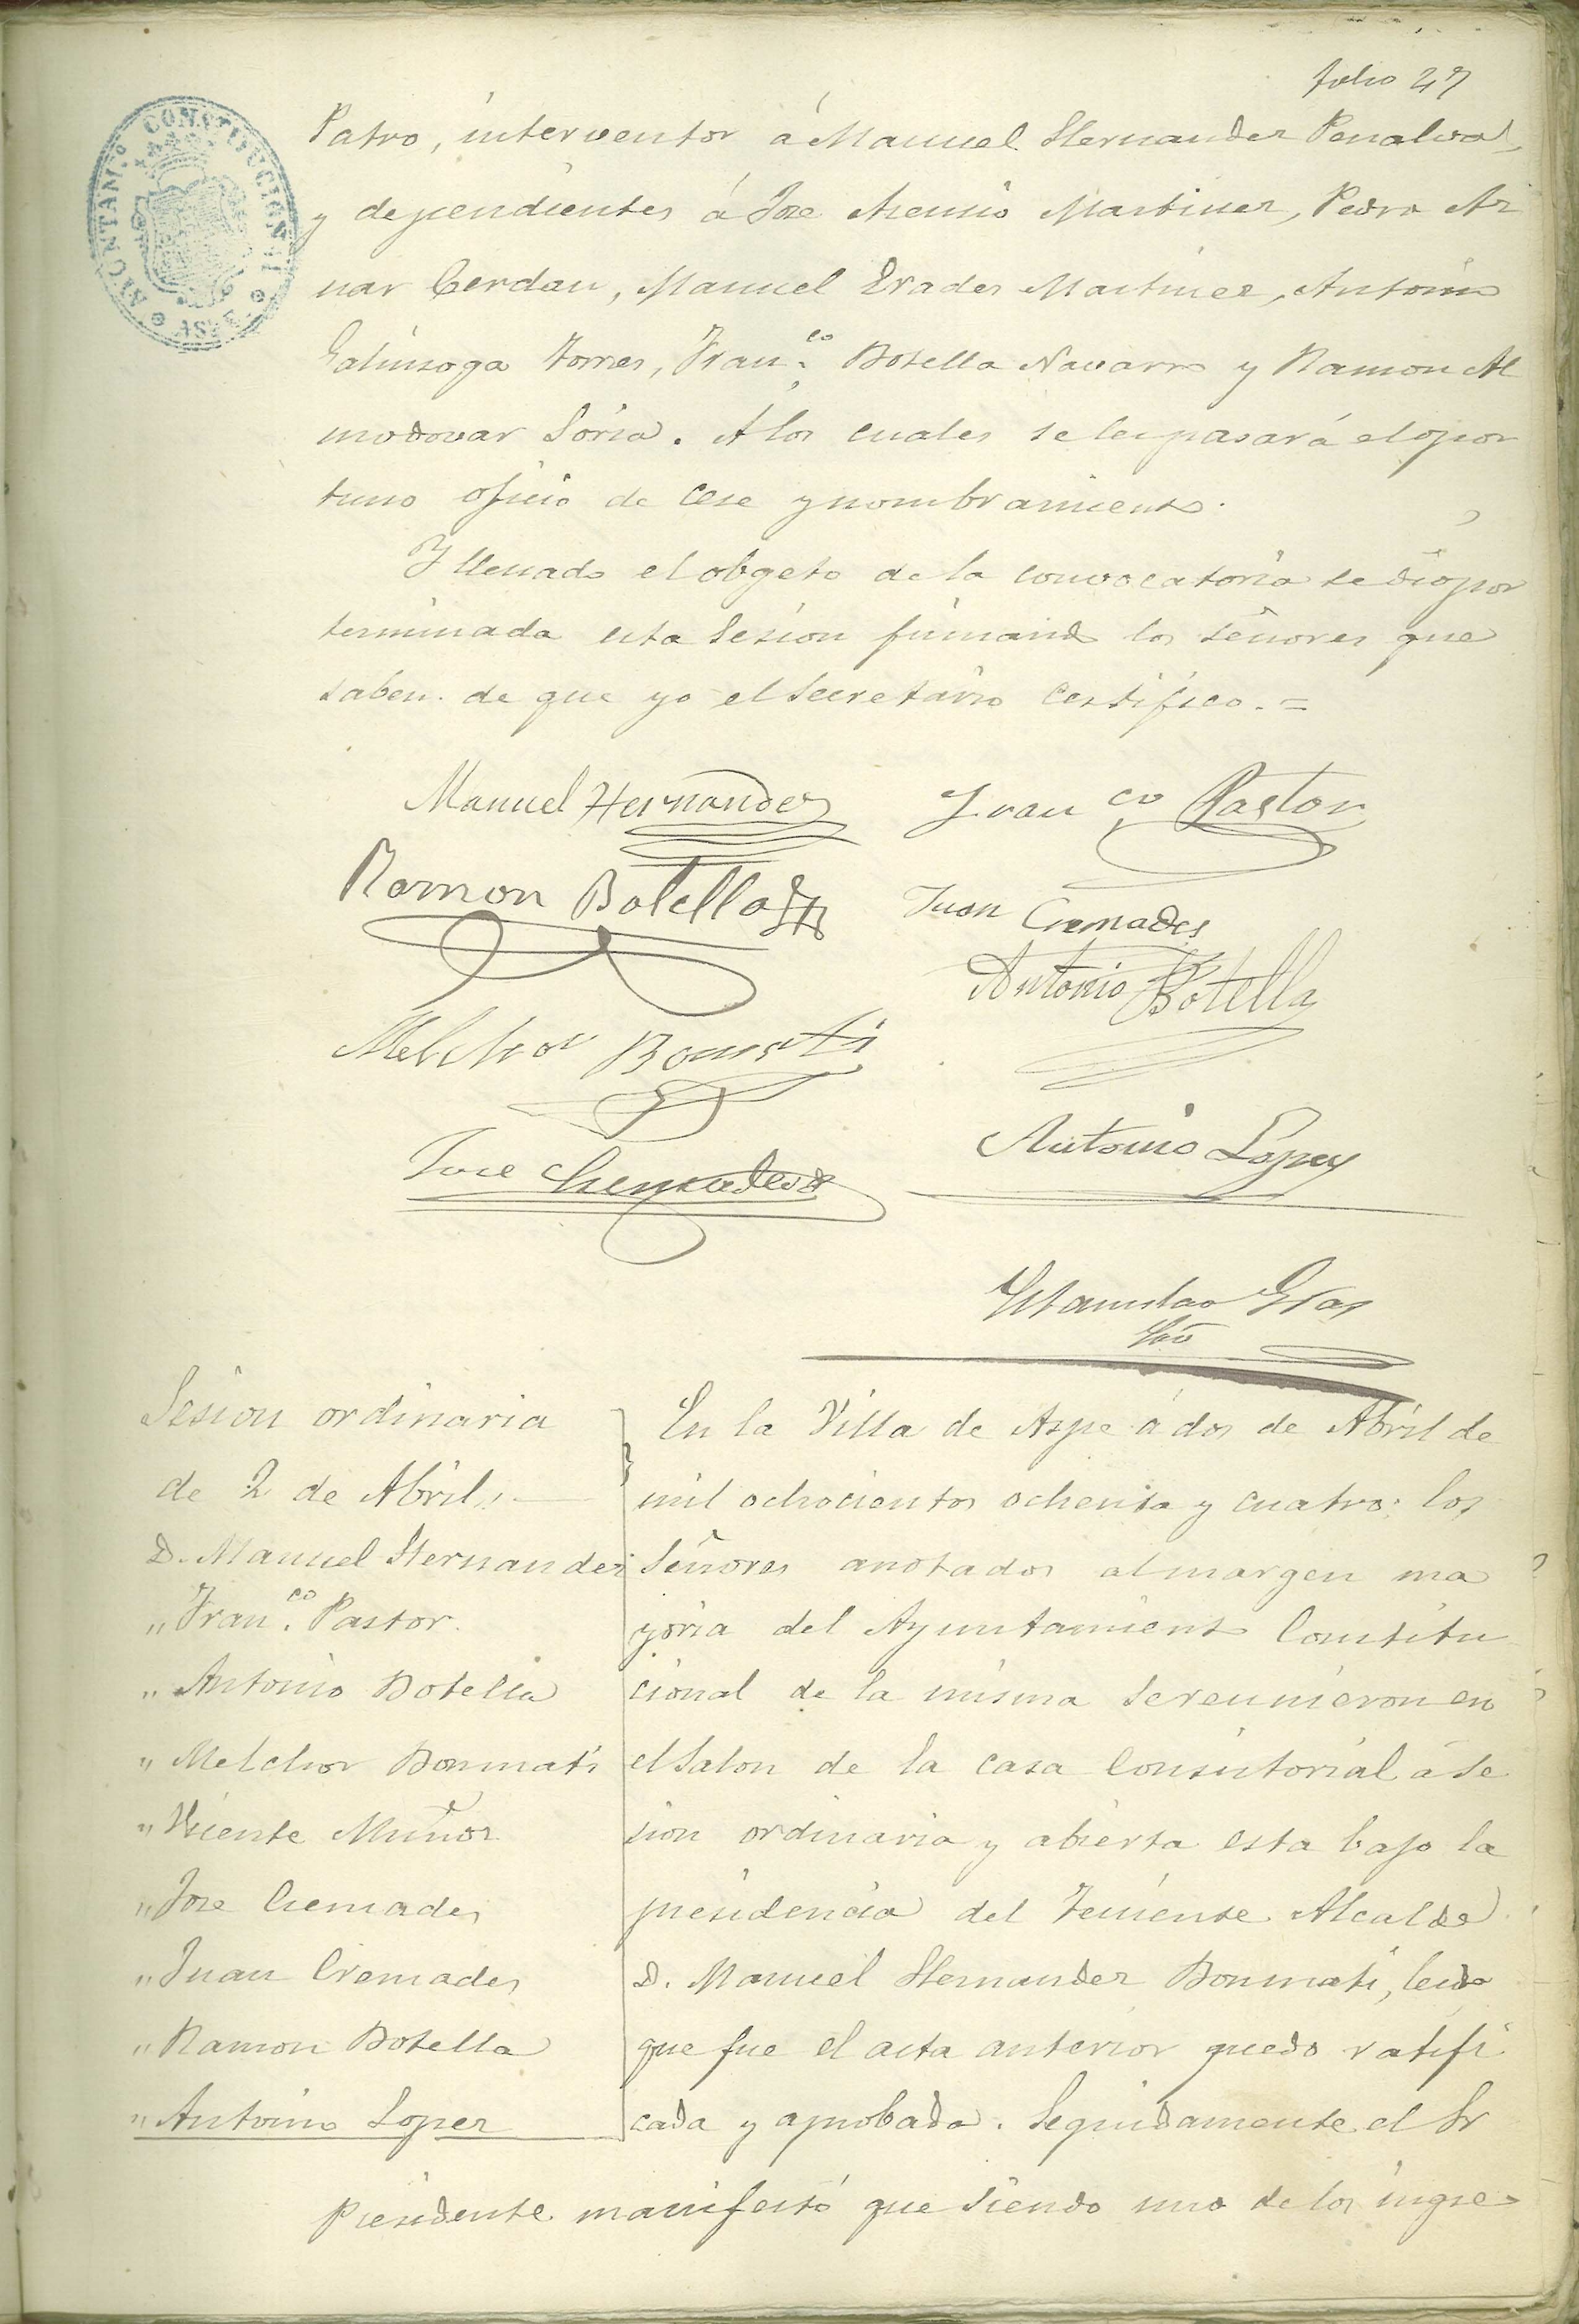 folio 27
AYUNTAM.TO CONSTITUCIONAL ASPE
Patro, interventor á Manuel Hernandez Penalva,
y dependientes á Jose Asensio Martinez, Pedro Az
nar Cerdan, Manuel Erades Martinez, Antonio
Galinsoga Torres, Fran.co Botella Navarro y Ramon Al
modovar Soria. A los cuales se les pasará el opor
tuno oficio de cese y nombramiento.
Y llenado el obgeto de la convocatoria se dió por
terminada esta Sesion firmando los señores que
saben. de que yo el Secretario Certifico. =
Manuel Hernandez Franco Pastor
Ramon Botella Juan Cremades
Antonio Botella
Melchor Bonmati
Jose Cremades Antonio Lopez
Estanislao Gras
Srio
Sesion ordinaria
de 2 de Abril.
D. Manuel Hernandez
" Fran.co Pastor.
" Antonio Botella
" Melchor Bonmati
" Vicente Muñoz
" Jose Cremades
" Juan Cremades
" Ramon Botella
" Antonio Lopez
En la Villa de Aspe á dos de Abril de
mil ochocientos ochenta y cuatro: los
Señores anotados al margen ma
yoria del Ayuntamiento Constitu
cional de la misma se reunieron en
el Salon de la casa Consistorial á se
sion ordinaria y abierta esta bajo la
presidencia del Teniente Alcalde
D. Manuel Hernandez Bonmati, leida
que fue el acta anterior quedo ratifi
cada y aprobada. Seguidamente el Sr
Presidente manifestó que siendo uno de los ingre